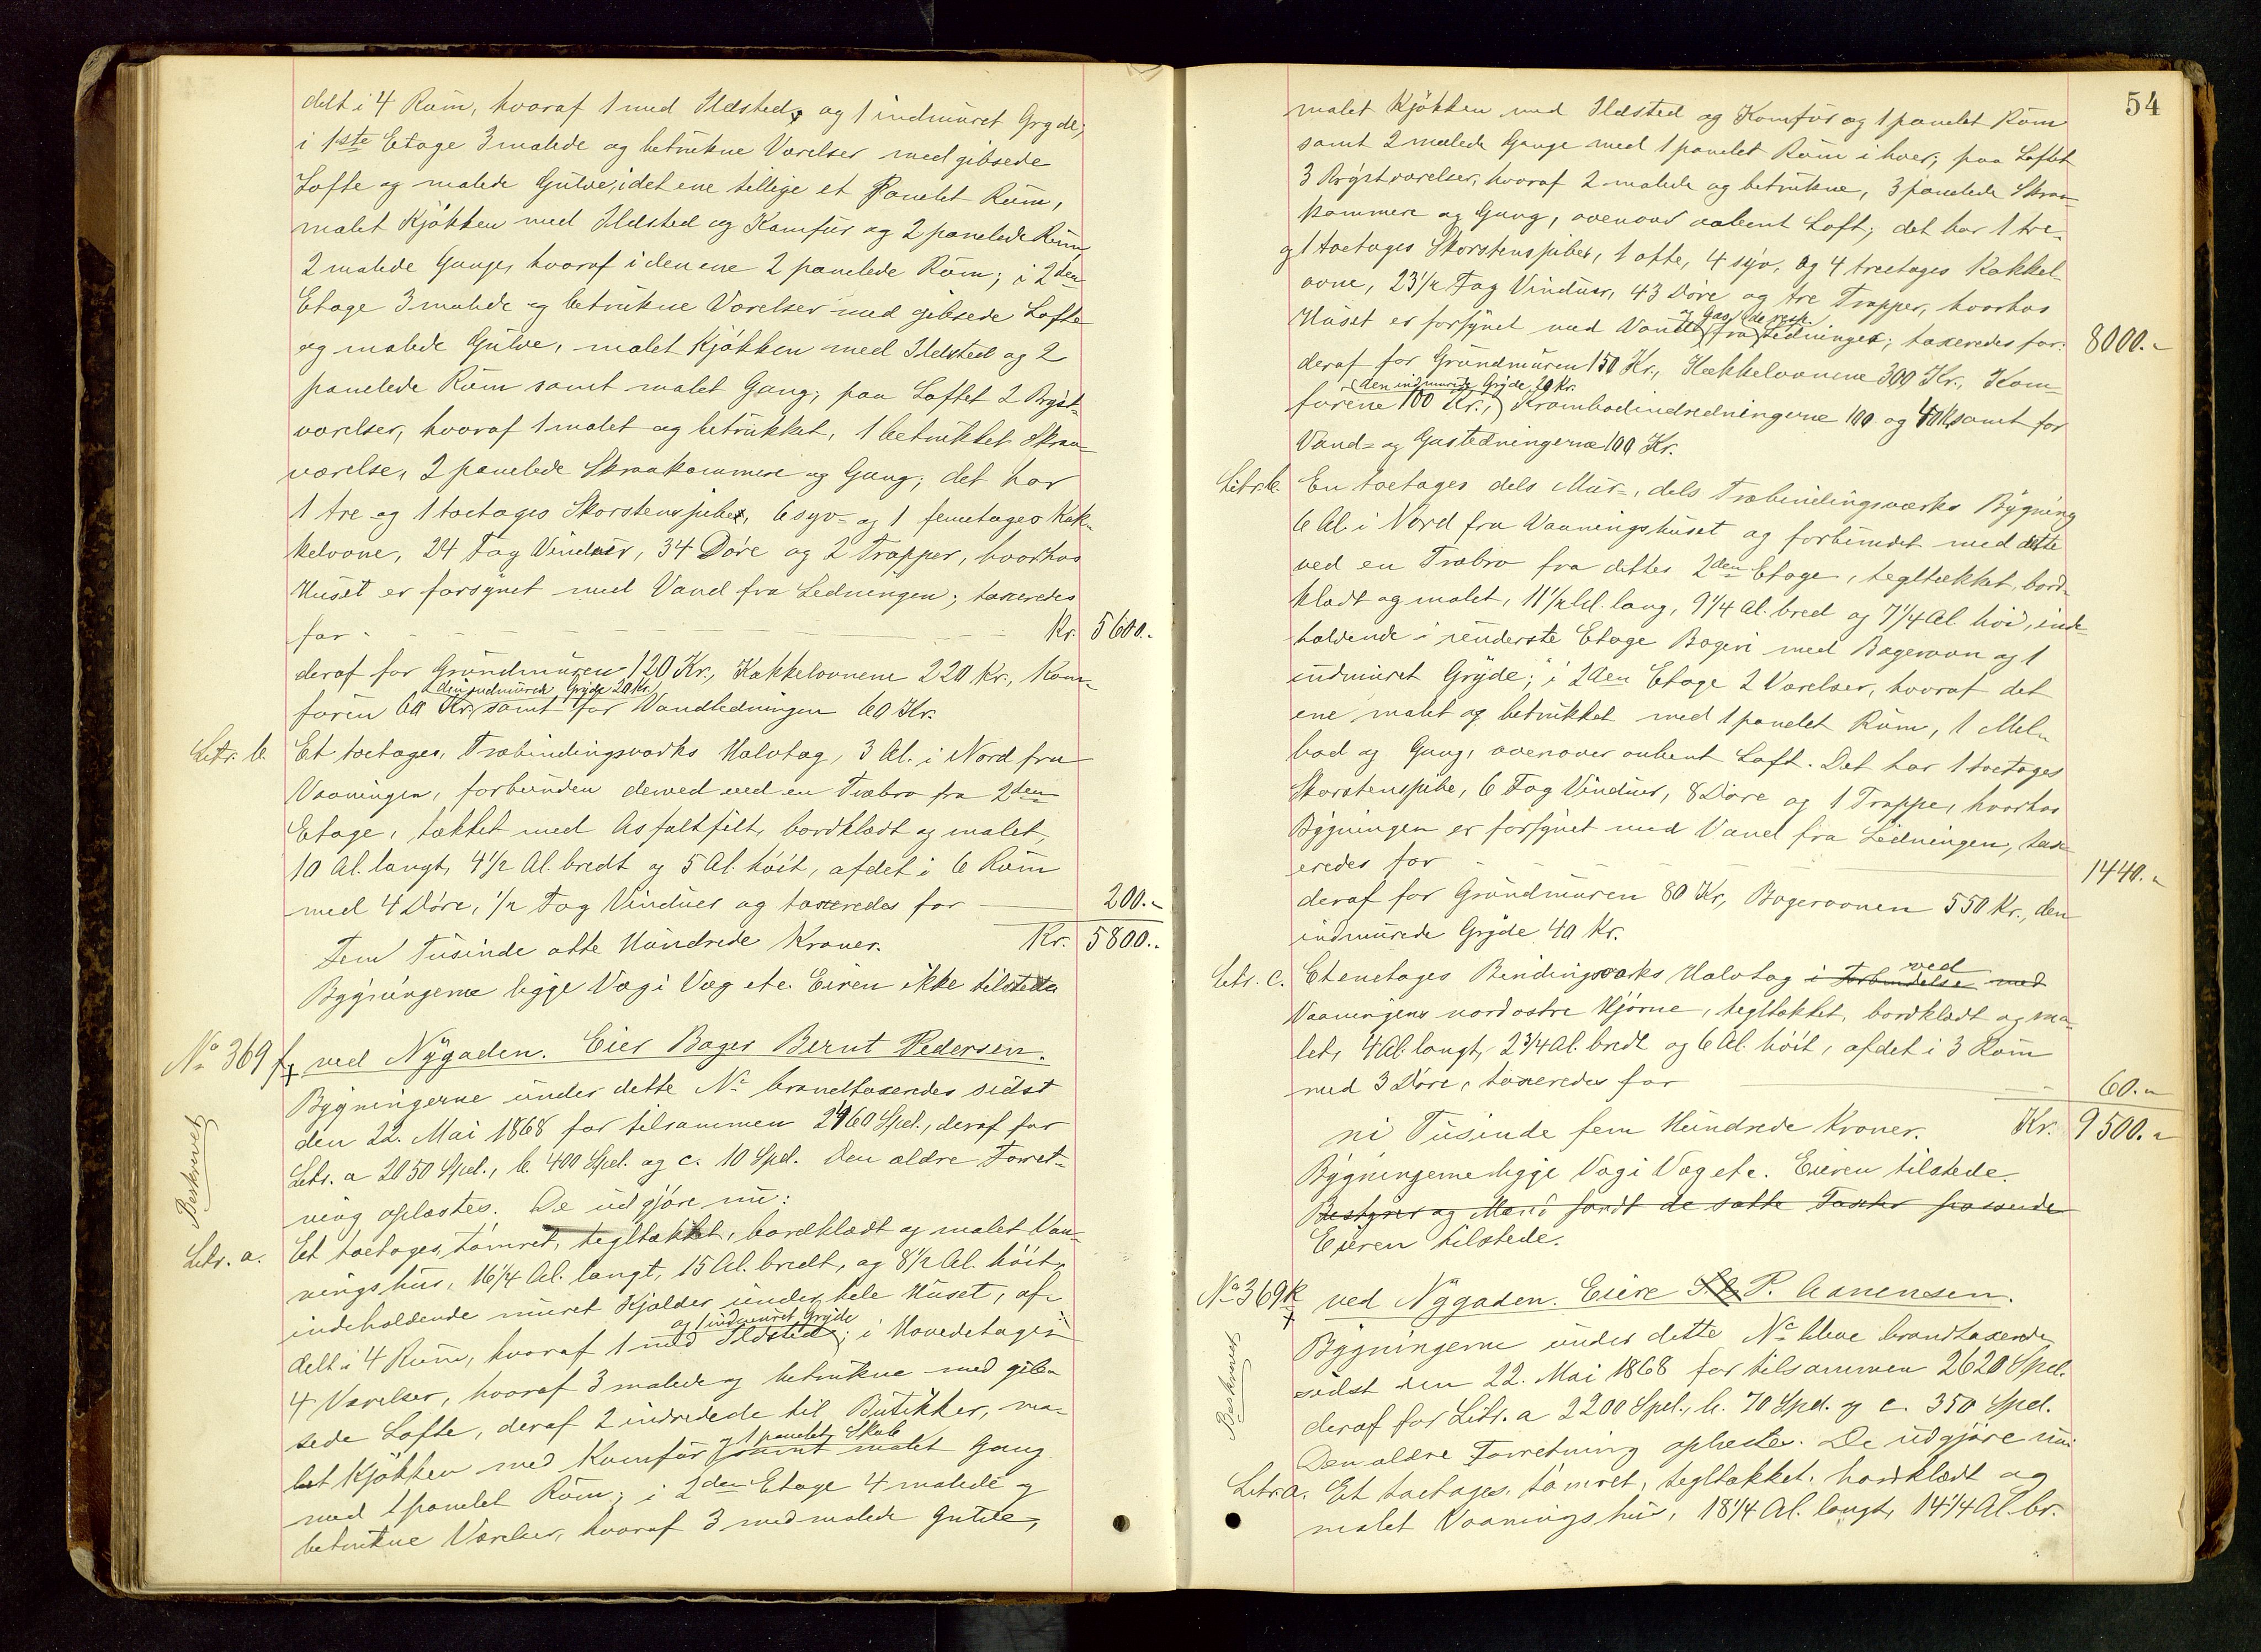 delt i 4 Rum, hvoraf 1 med Ildsted, og 1 indmuret Gryde;
i 1ste Etage 3 malede og betrukne Værelser med gibsede
Lofte og malede Gulve, i det ene tillige et Panelet Rum,
malet Kjøkken med Ildsted og Komfur og 2 panelede Rum
2 malede Gange, hvoraf i den ene 2 panelede Rum; i 2den
Etage 3 malede og betrukne Værelser med gibsede Lofte
og malede Gulve, malet Kjøkken med Ildsted og 2
panelede Rum samt malet Gang; paa Loftet 2 Bryst-
værelser, hvoraf 1 malet og betrukket, 1 betrukket Skraa-
værelse, 2 panelede Skraakammere og Gang; det har
1 tre og 1 toetages Skorstenspibe, 6 syv- og 1 femetages Kak-
kelovne, 24 Fag Vinduer, 34 Døre og 2 Trapper, hvorhos
Huset er forsynet med Vand fra Ledningen; taxeredes
for - Kr. 5600.-
deraf for Grundmuren 120 Kr., Kakkelovnene 220 Kr., Kom-
den indmurede Gryde 20 Kr.
furen 60 Kr. samt for Vandledningen 60 Kr.
Litr. b. Et toetages, Træbindingsværks Halvtag, 3 Al. i Nord fra
Vaaningen, forbunden derved ved en Træbro fra 2den
Etage, tækket med Asfaltfilt, bordklædt og malet,
10 Al. langt, 4 1/2 Al. bredt og 5 Al. høit, afdet i 6 Rum
med 4 Døre, 1/2 Fag Vinduer og taxeredes for 200.-
Fem Tusinde otte Hundrede Kroner. Kr. 5800.-
Bygningerne ligge Væg i Væg etc. Eieren ikke tilstede
No 369 f ved Nygaden. Eier Bager Bernt Pedersen.
Bygningerne under dette No brandtaxeredes sidst
den 22. Mai 1868 for tilsammen 2460 Spd., deraf for
Litr. a 2050 Spd., b. 400 Spd. og c. 10 Spd. Den ældre Forret-
Beskrevet
ning oplæstes. De udgjøre nu:
Litr. a. Et toetages, tømret, tegltækket, bordklædt og malet Vaa-
ningshus, 16 1/4 Al. langt, 15 Al. bredt, og 8 1/2 Al. høit,
indeholdende muret Kjælder under hele Huset, af-
og 1 indmuret Gryde
delt i 4 Rum, hvoraf 1 med Ildsted; i Hovedetagen
4 Værelser, hvoraf 3 malede og betrukne med gib-
sede Lofte, deraf 2 indredede til Butikker, ma-
og 1 panelet Skab
let Kjøkken med Komfur samt malet Gang
med 1 panelet Rum; i 2den Etage 4 malede og
betrukne Værelser, hvoraf 3 med malede Gulve,
54
malet Kjøkken med Ildsted og Komfur og 1 panelet Rum
samt 2 malede Gange med 1 panelet Rum i hver; paa Loftet
3 Brystværelser, hvoraf 2 malede og betrukne, 3 panelede Skraa-
kammere og Gang, ovenover aabent Loft; det har 1 tre-
og 1 toetages Skorstenspiber, 1 otte, 4 syv, og 4 treetages Kakkel-
ovne, 23 1/2 Fag Vinduer, 43 Døre og tre Trapper, hvorhos
og Gas de resp.
Huset er forsynet med Vand fra Ledninger; taxeredes for: 8000.-
deraf for Grundmuren 150 Kr., Kakkelovnene 300 Kr., Kom-
den indmurede Gryde 20 Kr.
furene 100 Kr., Krambodindredningerne 100 og samt for
Vand- og Gasledningerne 100 Kr.
Litr. b. En toetages dels Mur-, dels Træbindingsværks Bygning
6 Al. i Nord fra Vaaningshuset og forbundet med dette
ved en Træbro fra dettes 2den Etage, tegltækket, bord-
klædt og malet, 11 1/2 Al. lang, 9 1/4 Al. bred og 7 1/4 Al. høi, inde-
holdende i underste Etage Bageri med Bagerovn og 1
indmuret Gryde; i 2den Etage 2 Værelser, hvoraf det
ene malet og betrukket med 1 panelet Rum, 1 Mel-
bod og Gang, ovenover aabent Loft. Det har 1 toetages
Skorstenspibe, 6 Fag Vinduer, 8 Døre og 1 Trappe, hvorhos
Bygningen er forsynet med Vand fra Ledningen, tax-
eredes for 1440.-
deraf for Grundmuren 80 Kr., Bagerovnen 550 Kr., den
indmurede Gryde 40 Kr.
ved
Litr. c. Et enetages Bindingsværks Halvtag i Forbindelse med
Vaaningens nordostre Hjørne, tegltækket, bordklædt og ma-
let, 4 Al. langt, 2 3/4 Al. bredt og 6 Al. høit, afdet i 3 Rum
med 3 Døre, taxeredes for 60.-
ni Tusinde fem Hundrede Kroner. Kr. 9500.-
Bygningerne ligge Væg i Væg etc. Eieren tilstede.
Bestyrer og Mænd fandt de satte Taxter passende
Eieren tilstede.
No 369 k ved Nygaden. Eiere P. Aanensen.
Bygningerne under dette No bleve brandtaxerede
sidst den 22. Mai 1868 for tilsammen 2620 Spd.
Beskrevet
deraf for Litr. a 2200 Spd., b. 70 Spd. og c. 350 Spd.
Den ældre Forretning oplæstes. De udgjøre nu:
Litr. a. Et toetages, tømret, tegltækket, bordklædt og
malet Vaaningshus, 18 1/4 Al. langt, 14 1/4 Al. br.